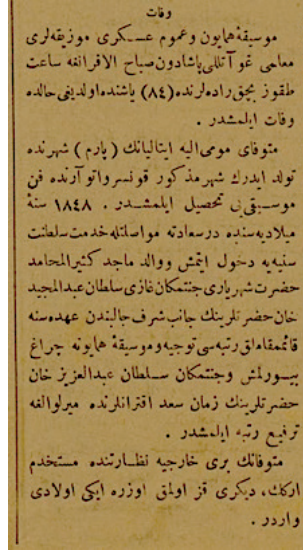 وفات
موسيقهٔ همايون وعموم عسكرى موزيقه‌لرى
معلمى غو آتللى پاشا دون صباح الافرانغه ساعت
طقوز بچق راده‌لرنده (٨٤) ياشنده اولديغى حالده
وفات ايلمشدر .
متوفاى مومى‌اليه ايتاليانك (پارم) شهرنده
تولد ايدرك شهر مذكور قونسرواتوآرنده فن
موسيقى‌بى تحصيل ايلمشدر . ١٨٤٨ سنهٔ
ميلاديه‌سنده درسعادته مواصلتله خدمت سلطنت
سنيه‌يه دخول ايتمش ووالد ماجد كثيرالمحامد
حضرت شهريارى جنتمكان غازى سلطان عبدالمجيد
خان حضرتلرينك جانب شرف جالبندن عهده‌سنه
قائمقاملق رتبه‌سى توجيه وموسيقهٔ همايونه چراغ
بيورلمش وجنتمكان سلطان عبدالعزيز خان
حضرتلرينك زمان سعد اقترانلرنده ميرلوالغه
ترفيع رتبه ايلمشدر .
متوفانك برى خارجيه نظارتنده مستخدم
اركك، ديكرى قز اولمق اوزره ايكى اولادى
واردر .